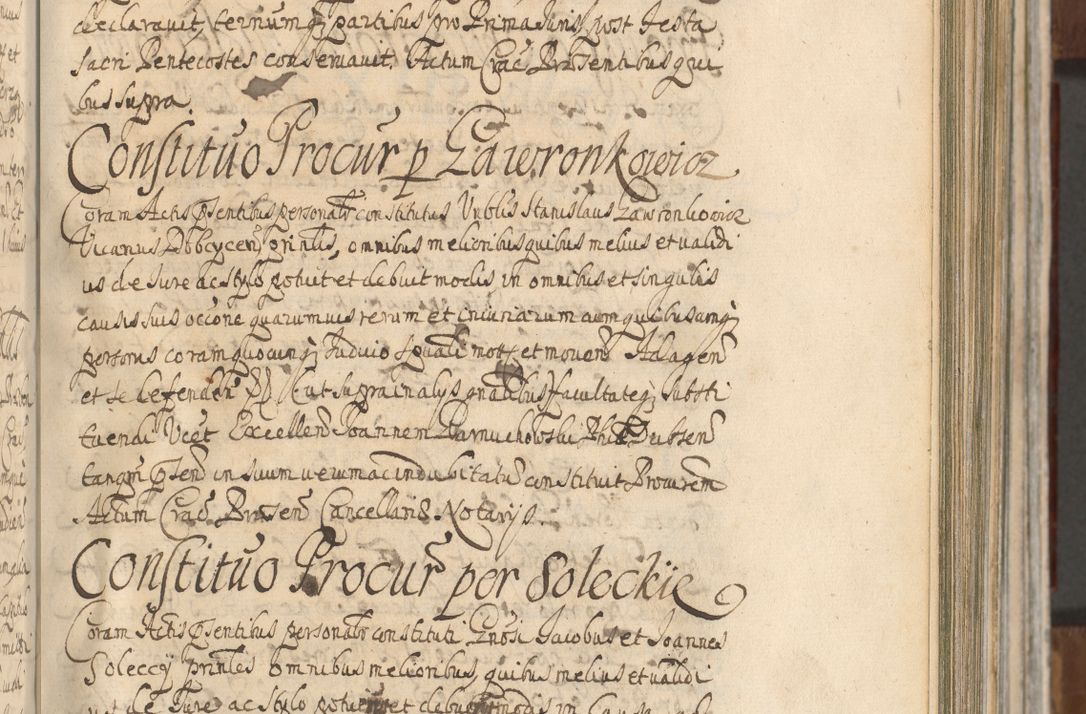 declaravit, ternumq; partibus pro Prima Juris post Festa
sacri Pentecostes conservavit. Actum Crac: Præsentibus qui
bus supra.
Constitutio Procur: p Gawronkowicz
Coram Actis psentibus personalr constitutus Vrblis Stanislaus Gawronkowicz
Vicarius Dobcycen: prinlis, omnibus melioribus quibus melius et validi
us de Jure ac stylo potuit et debuit modis in omnibus et singulis
causis suis occōne quarumvis rerum et iniuriarum cum quibusvis
personis coram quocunq; Judicio spuali motis et moven: Ad agen:
et se defenden: (ut supra in alys gnalibus) facultateq; substi
tuendi Ucet Excellen: Joannem Darnucholski Phi: absen:
tanqm psen: in suum verum ac indubitatu: constituit Procurem
Actum Crac: Præsen: Cancellariæ Notarijs.
Constitutio Procur: per Soleckie
Coram Actis psentibus personalr constituti Gnosi Jacobus et Joannes
Soleccÿ prinles omnibus melioribus, quibus melius et validi
us de Jure ac stylo potuerunt et debuerunt modis in Causa